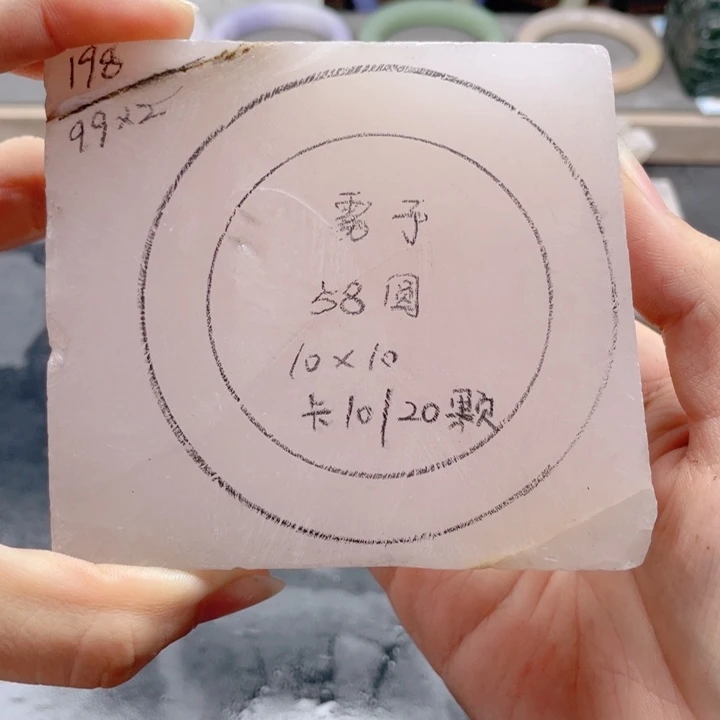 198
99×2
電子
58圆
10×10
卡10/20颗